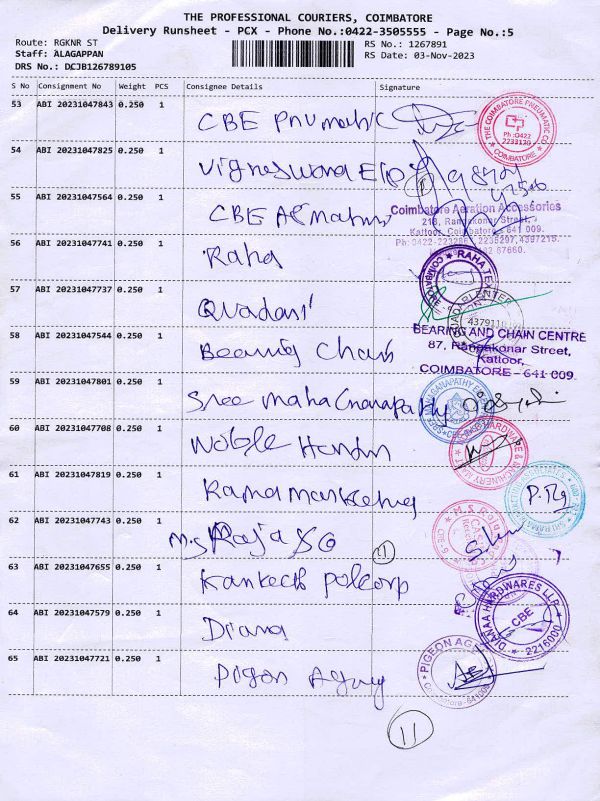 THE PROFESSIONAL COURIERS, COIMBATORE
Delivery Runsheet - PCX - Phone No.:0422-3505555 - Page No.:5
Route: RGKNR ST RS No.: 1267891
Staff: ALAGAPPAN RS Date: 03-Nov-2023
DRS No.: DCJB126789105
S No Consignment No Weight PCS Consignee Details Signature
53 ABI 20231047843 0.250 1
CBE Pnumatic
THE COIMBATORE PNEUMATIC CO
Ph:0422
2233120
COIMBATORE
54 ABI 20231047825 0.250 1
Vigneswara
55 ABI 20231047564 0.250 1
CBE
Coimbatore Aeration Accessories
218, Rangakonar Street,
Kattoor, Coimbatore - 641 009.
56 ABI 20231047741 0.250 1
Raha
RAHA TEX
COIMBATORE
57 ABI 20231047737 0.250 1
Quadant
4379110
58 ABI 20231047544 0.250 1
Bearing Chain
BEARING AND CHAIN CENTRE
87, Rangakonar Street,
Kattoor,
COIMBATORE - 641 009
59 ABI 20231047801 0.250 1
Sree maha Ganapathy
60 ABI 20231047708 0.250 1
Noble
HARDWARE & MACHINERY
61 ABI 20231047819 0.250 1
Rama marketing
62 ABI 20231047743 0.250 1
M.S Raja SG
M.S.Raja
63 ABI 20231047655 0.250 1
Kantech polcorp
64 ABI 20231047579 0.250 1
Diana
DIANAA HARDWARES LLP
CBE
2216000
65 ABI 20231047721 0.250 1
Pigon Agency
PIGEON AGENCY
11